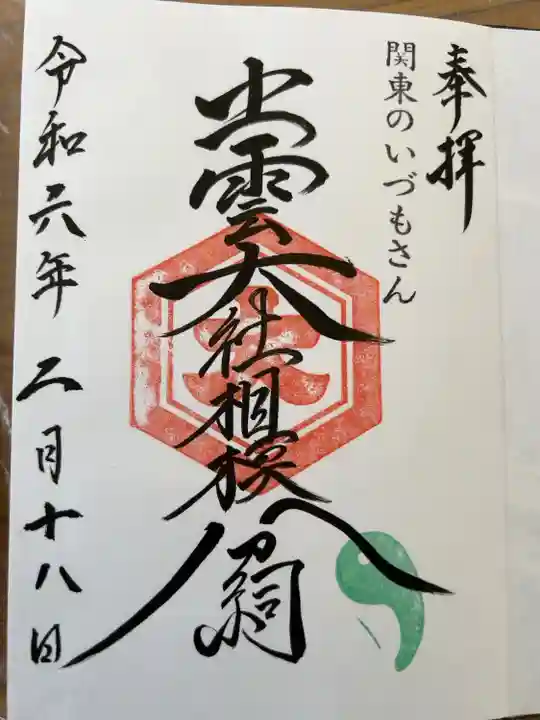 奉拝
関東のいづもさん
出雲大社相模分祠
令和六年二月十八日